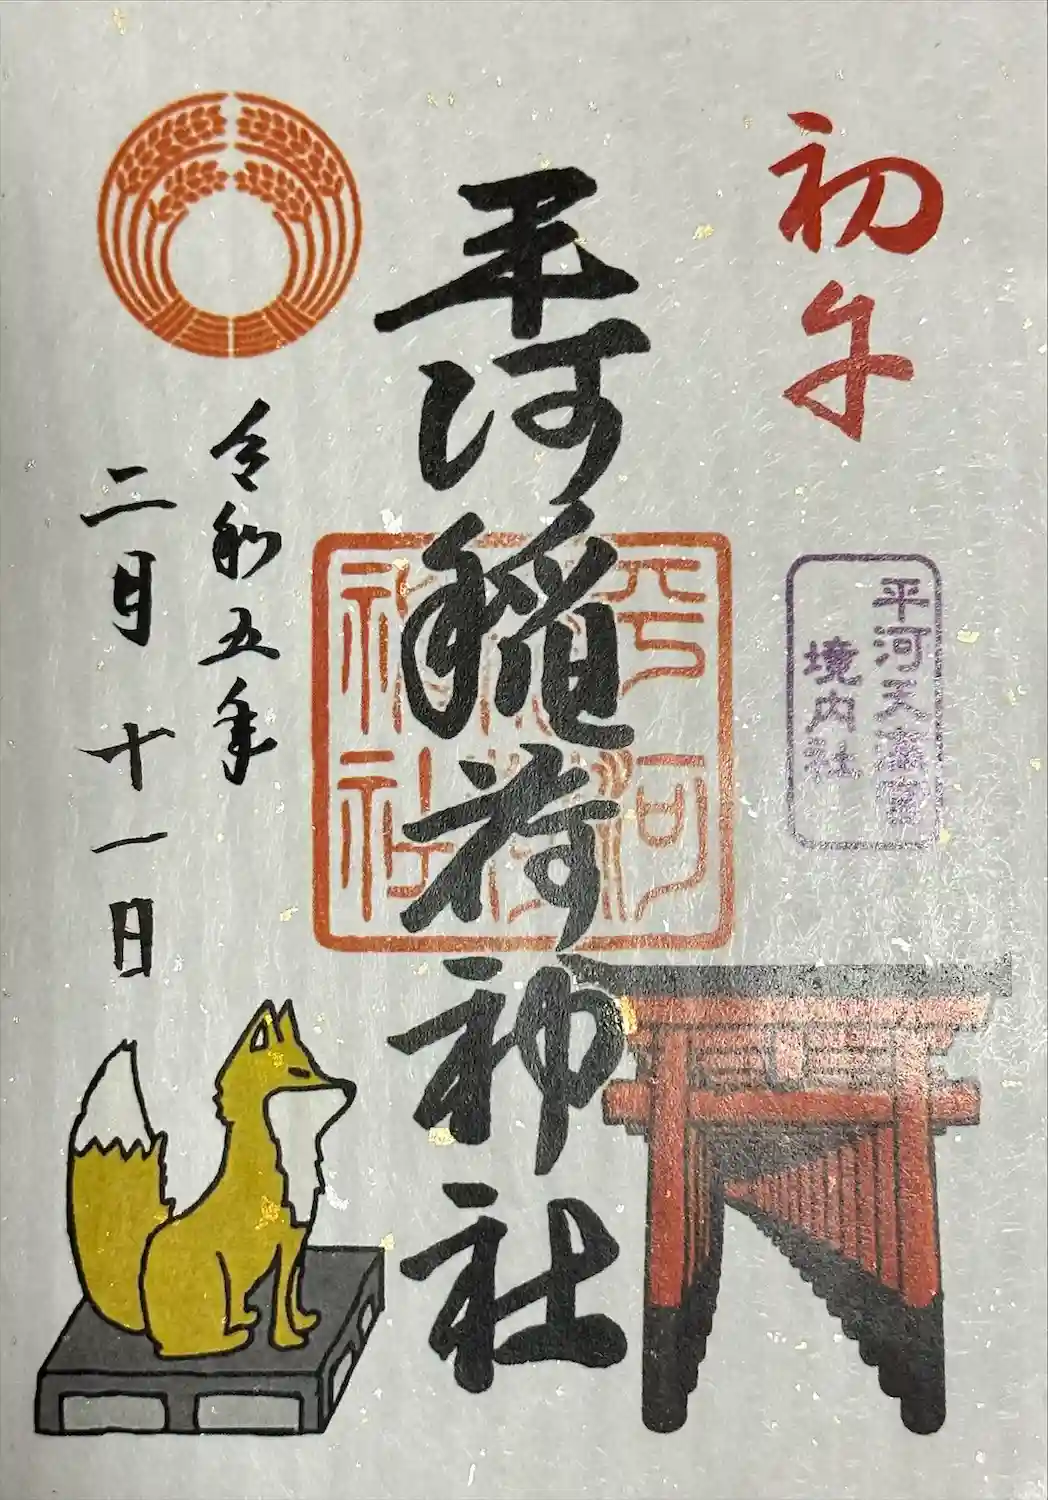 初午
平河天満宮
境内社
平河稲荷神社
平河
稲荷
神社
令和五年
二月十一日